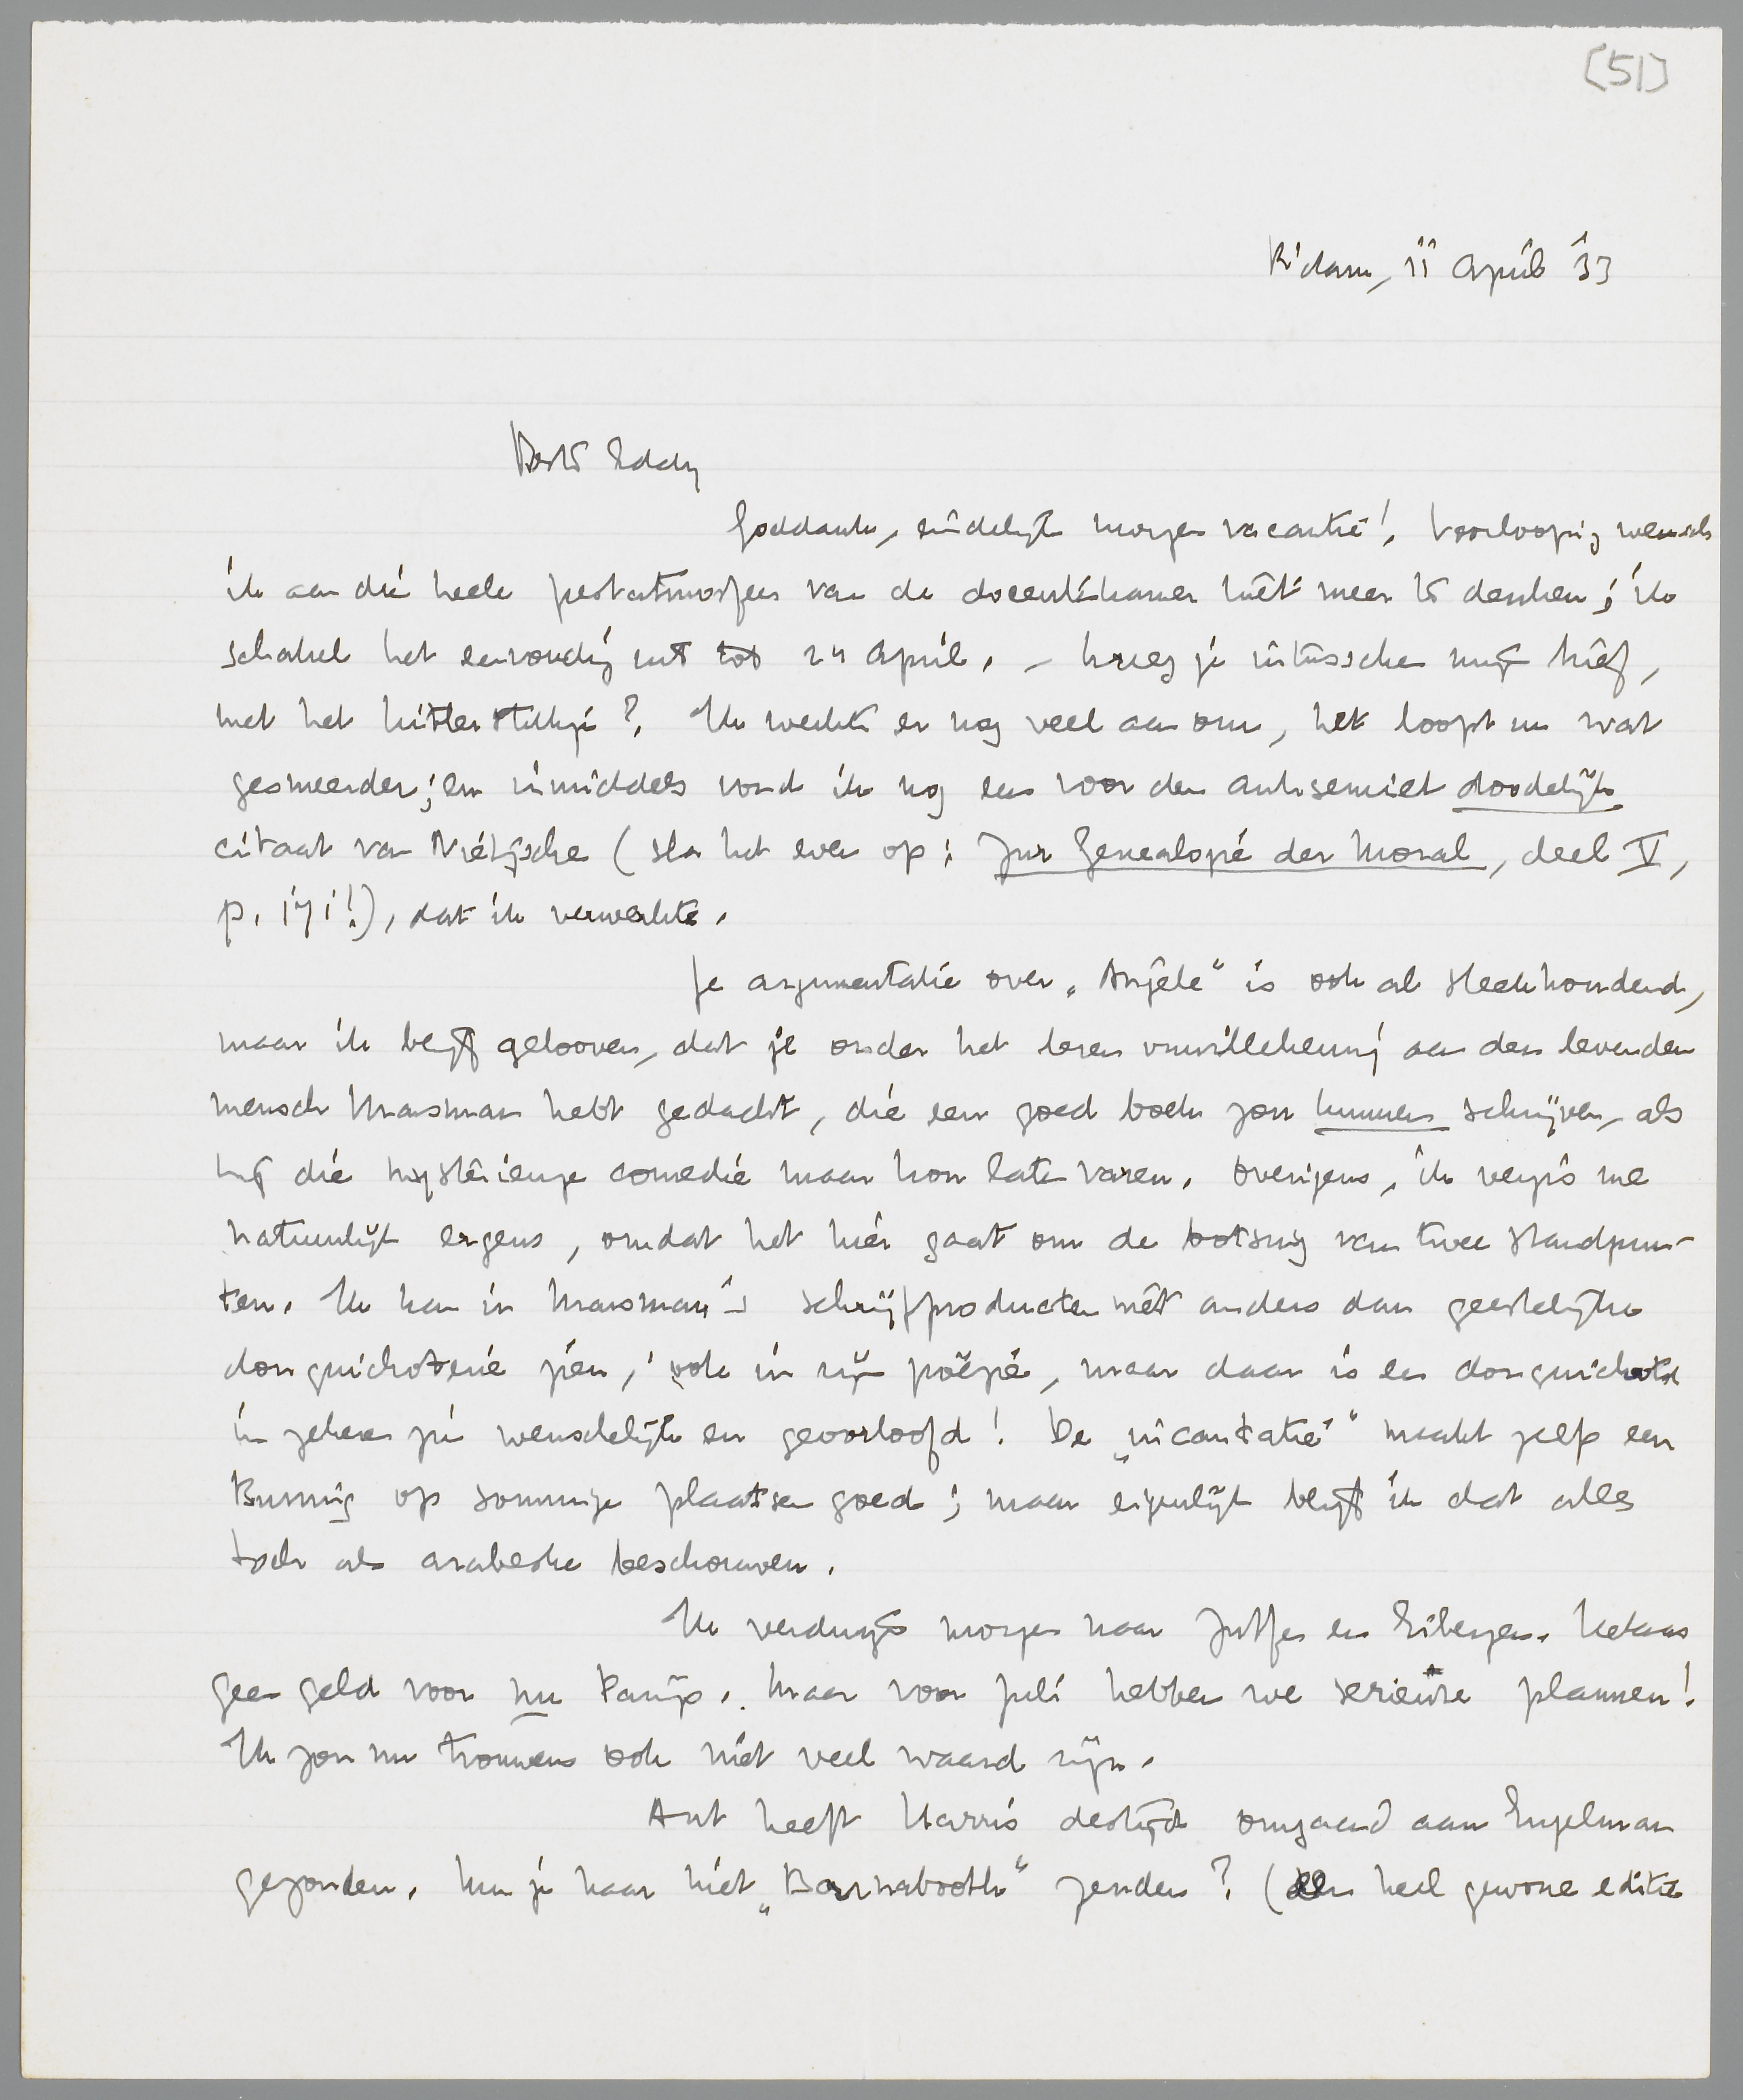 [51]
R'dam, 11 April '33
Beste Eddy
Goddank, eindelijk morgen vacantie! Voorloopig wensch
ik aan die heele pestatmosfeer van de docentenkamer niet meer te denken; ik
schakel het eenvoudig uit tot 24 April. – Kreeg je intusschen mijn brief,
met het Hitlerstukje? Ik werkte er nog veel aan om, het loopt nu wat
gesmeerder; en inmiddels vond ik nog een voor den antisemiet doodelijk
citaat van Nietzsche (sla het even op: Zur Genealogie der Moral, deel V,
p. 171!), dat ik verwerkte.
Je argumentatie over „Angèle" is ook al steekhoudend,
maar ik blijf gelooven, dat je onder het lezen onwillekeurig aan den levenden
mensch Marsman hebt gedacht, die een goed boek zou kunnen schrijven, als
hij die mysterieuze comedie maar kon laten varen. Overigens, ik vergis me
natuurlijk ergens, omdat het hier gaat om de botsing van twee standpun-
ten. Ik kan in Marsman's schrijfproducten niet anders dan geestelijke
donquichoterie zien, ook in zijn poëzie, maar daar is een donquichote
in zekeren zin wenschelijk en geoorloofd! De „incantatie" maakt zelfs een
Buning op sommige plaatsen goed; maar eigenlijk blijf ik dat alles
toch als arabeske beschouwen.
Ik verdwijn morgen naar Zutfen en Eibergen. Helaas
geen geld voor nu Parijs. Maar voor Juli hebben we serieuze plannen!
Ik zou nu trouwens ook niet veel waard zijn.
Ant heeft Harris destijds omgaand aan Engelman
gezonden. Kun je haar niet „Barnabooth" zenden? (een heel gewone editie